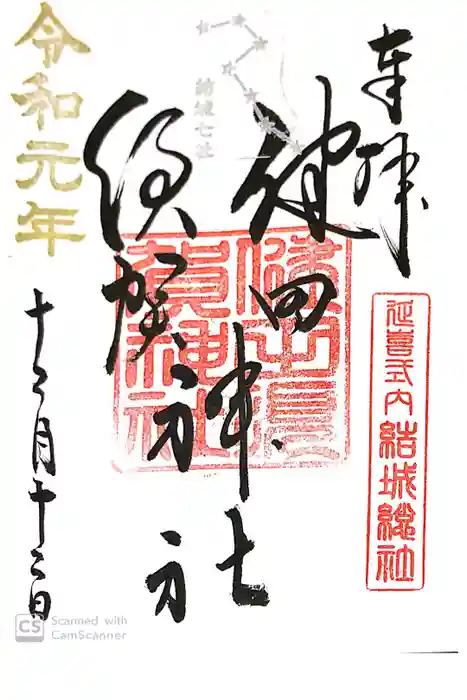 奉拝
延喜式内 結城總社
健田神社
須賀神社
健田須
賀神社
結城七社
令和元年
十二月十二日
CS
Scanned with
CamScanner